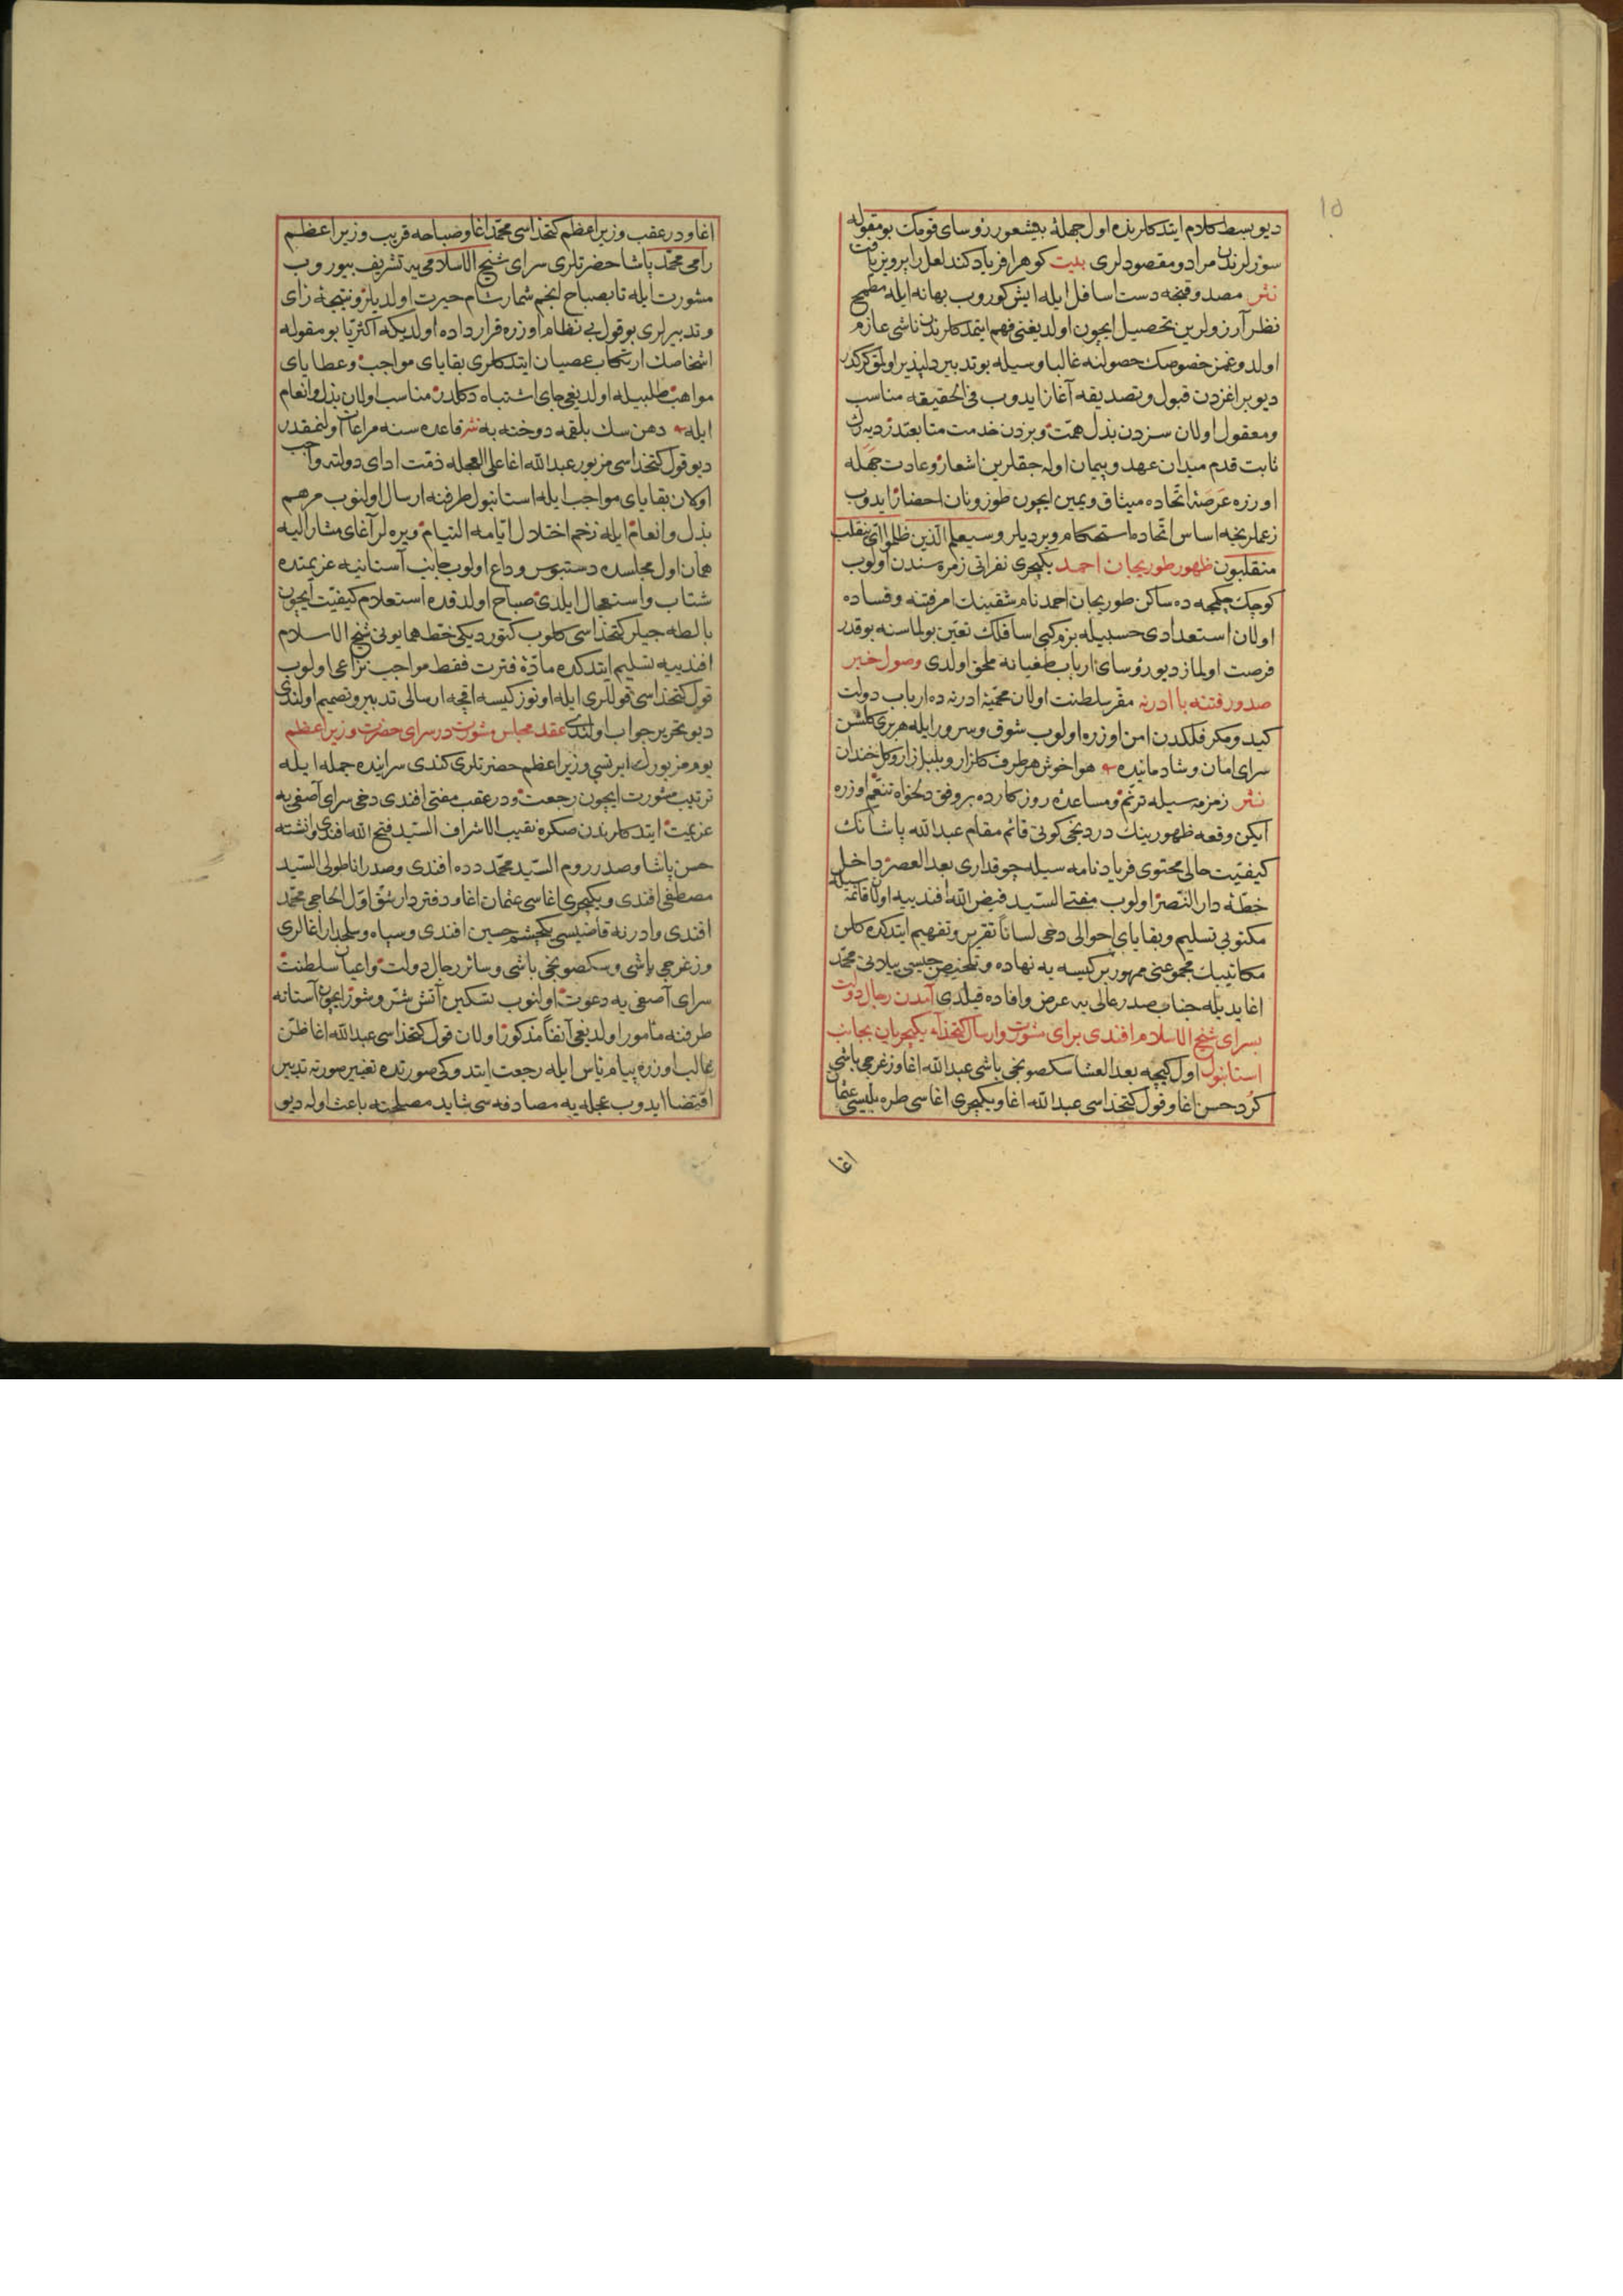 ١٥
ديو بسط كلام ايتدكلرنده اول جملهٔ بيشعور رؤساى قومك بو مقوله
سوزلرندن مراد و مقصودلرى بيت كوهرا فرياد كند لعل را پرويز يافت
نثر مصدوقنجه دست اسافل ايله ايش كوروب بهانه ايله مطمح
نظر آرزولرين تحصيل ايچون اولديغنى فهم ايتمدكلرندن ناشى عازم
اولدوغمز خصوصك حصولنه غالبا وسيله بو تدبير دلپذير اولمق كركدر
ديو بر اغزدن قبول و تصديقه آغاز ايدوب فى الحقيقه مناسب
و معقول اولان سزدن بذل همت و بزدن خدمت متابعتدر ديه رك
ثابت قدم ميدان عهد و پيمان اوله جقلرين اشعار و عادت جهله
اوزره عرصهٔ اتحاده ميثاق و يمين ايچون طوز و نان احضار ايدوب
زعملرنجه اساس اتحاده استحكام ويرديلر و سيعلم الذين ظلموا اى منقلب
ينقلبون ظهور طوريجان احمد يكيچرى نفراتى زمره سندن اولوب
كوچك چكمجه ده ساكن طوريجان احمد نام شقينك امر فتنه و فساده
اولان استعدادى حسبيله بزم كبى اسافلك تعين بولماسنه بو قدر
فرصت اولماز ديو رؤساى ارباب طغيانه ملحق اولدى وصول خبر
صدور فتنه با ادرنه مقر سلطنت اولان محميهٔ ادرنه ده ارباب دولت
كيد و مكر فلكدن امن اوزره اولوب شوق و سرور ايله هر برى كلشن
سراى امان و شادمانيده هوا خوش هر طرف كلزار و بلبل زار و كل خندان
نثر زمزمه سيله ترنم و مساعدهٔ روزكارده بر وفق دلخواه تنعم اوزره
ايكن وقعه ظهورينك دردنجى كونى قائم مقام عبدالله پاشانك
كيفيت حالى محتوى فرياد نامه سيله چوقدارى بعد العصر داخل
خطهٔ دار النصر اولوب مفتى السيد فيض الله افنديه اولان قائمه سيله
مكتوبى تسليم و بقاياى احوالى دخى لسانا تقرير و تفهيم ايتدكده كلن
مكاتيبك مجموعنى ممهور بر كيسه يه نهاده و تلخيصجيسى ييلانى محمد
اغا يديله جناب صدر عالى يه عرض و افاده قيلدى آمدن رجال دولت
بسراى شيخ الاسلام افندى براى مشورت و ارسال كتخداى يكيچريان بجانب
استانبول اول كيجه بعد العشا سكصونجى باشى عبدالله اغا و زغرجى باشى
كرد حسن اغا و قول كتخداسى عبدالله اغا و يكيچرى اغاسى طره بليسى عثمان
اغا
اغا و در عقب وزير اعظم كتخداسى محمد اغا و صباحه قريب وزير اعظم
رامى محمد پاشا حضرتلرى سراى شيخ الاسلامى يه تشريف بيوروب
مشورت ايله تا بصباح انجم شمار شام حيرت اولديلر و نتيجهٔ راى
و تدبيرلرى بو قول بى نظام اوزره قرار داده اولديكه اكثريا بو مقوله
اشخاصك ارتكاب عصيان ايتدكلرى بقاياى مواجب و عطاياى
مواهب طلبيله اولديغى جاى اشتباه دكلدر مناسب اولان بذل و انعام
ايله دهن سك بلقمه دوخته به نثر قاعده سنه مراعات اولنمقدر
ديو قول كتخداسى مزبور عبدالله اغا على العجله ذمت اداى دولته واجب
اولان بقاياى مواجب ايله استانبول طرفنه ارسال اولنوب مرهم
بذل و انعام ايله زخم اختلال ايامه التيام ويره لر آغاى مشار اليه
همان اول مجلسده دستبوس وداع اولوب جانب آستانيه عزيمتده
شتاب و استعجال ايلدى صباح اولدقده استعلام كيفيت ايچون
بالطه جيلر كتخداسى كلوب كتورديكى خط همايونى شيخ الاسلام
افنديه تسليم ايتدكده مادهٔ فترت فقط مواجب نزاعى اولوب
قول كتخداسى قوللرى ايله اوتوز كيسه اقچه ارسالى تدبير و تصميم اولندى
ديو تحرير جواب اولندى عقد مجلس مشورت در سراى حضرت وزير اعظم
يوم مزبورك ايرتسى وزير اعظم حضرتلرى كندى سراينده جمله ايله
ترتيب مشورت ايچون رجعت و در عقب مفتى افندى دخى سراى آصفى يه
عزيمت ايتدكلرندن صكره نقيب الاشراف السيد فتح الله افندى و انشته
حسن پاشا و صدر روم السيد محمد دده افندى و صدر اناطولى السيد
مصطفى افندى و يكيچرى اغاسى عثمان اغا و دفتردار شق اول الحاجى محمد
افندى و ادرنه قاضيسى يكچشم حسين افندى و سپاه و سلحدار اغالرى
و زغرجى باشى و سكصونجى باشى و سائر رجال دولت و اعيان سلطنت
سراى آصفى يه دعوت اولنوب تسكين آتش شر و شور ايچون آستانه
طرفنه مأمور اولديغى آنفا مذكور اولان قول كتخداسى عبدالله اغا ظن
غالب اوزره پيام ياس ايله رجعت ايتدوكى صورتده تغيير صورته تدبير
اقتضا ايدوب عجله يه مصادفه سى شايد مصلحته باعث اوله ديو